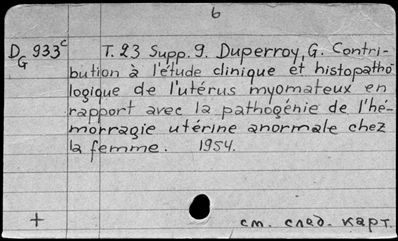 6
D G 933c T. 23 Supp. 9. Duperroy, G. Contri-
bution à l'étude clinique et histopatho
logique de l'utérus myomateux en
rapport avec la pathogénie de l'hé-
morragie utérine anormale chez
la femme. 1954.
+ см. след. карт.